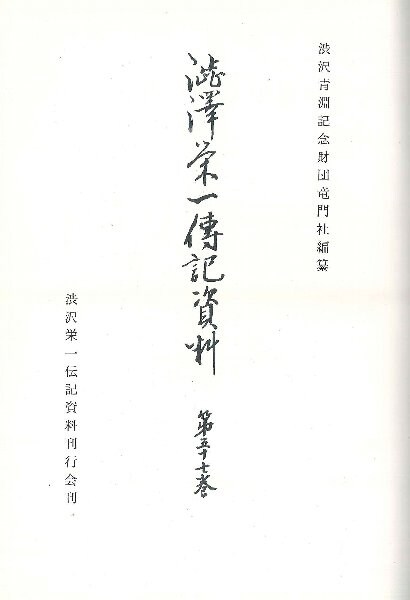 渋沢青淵記念財団竜門社編纂
澁澤栄一傳記資料
第五十七巻
渋沢栄一伝記資料刊行会刊